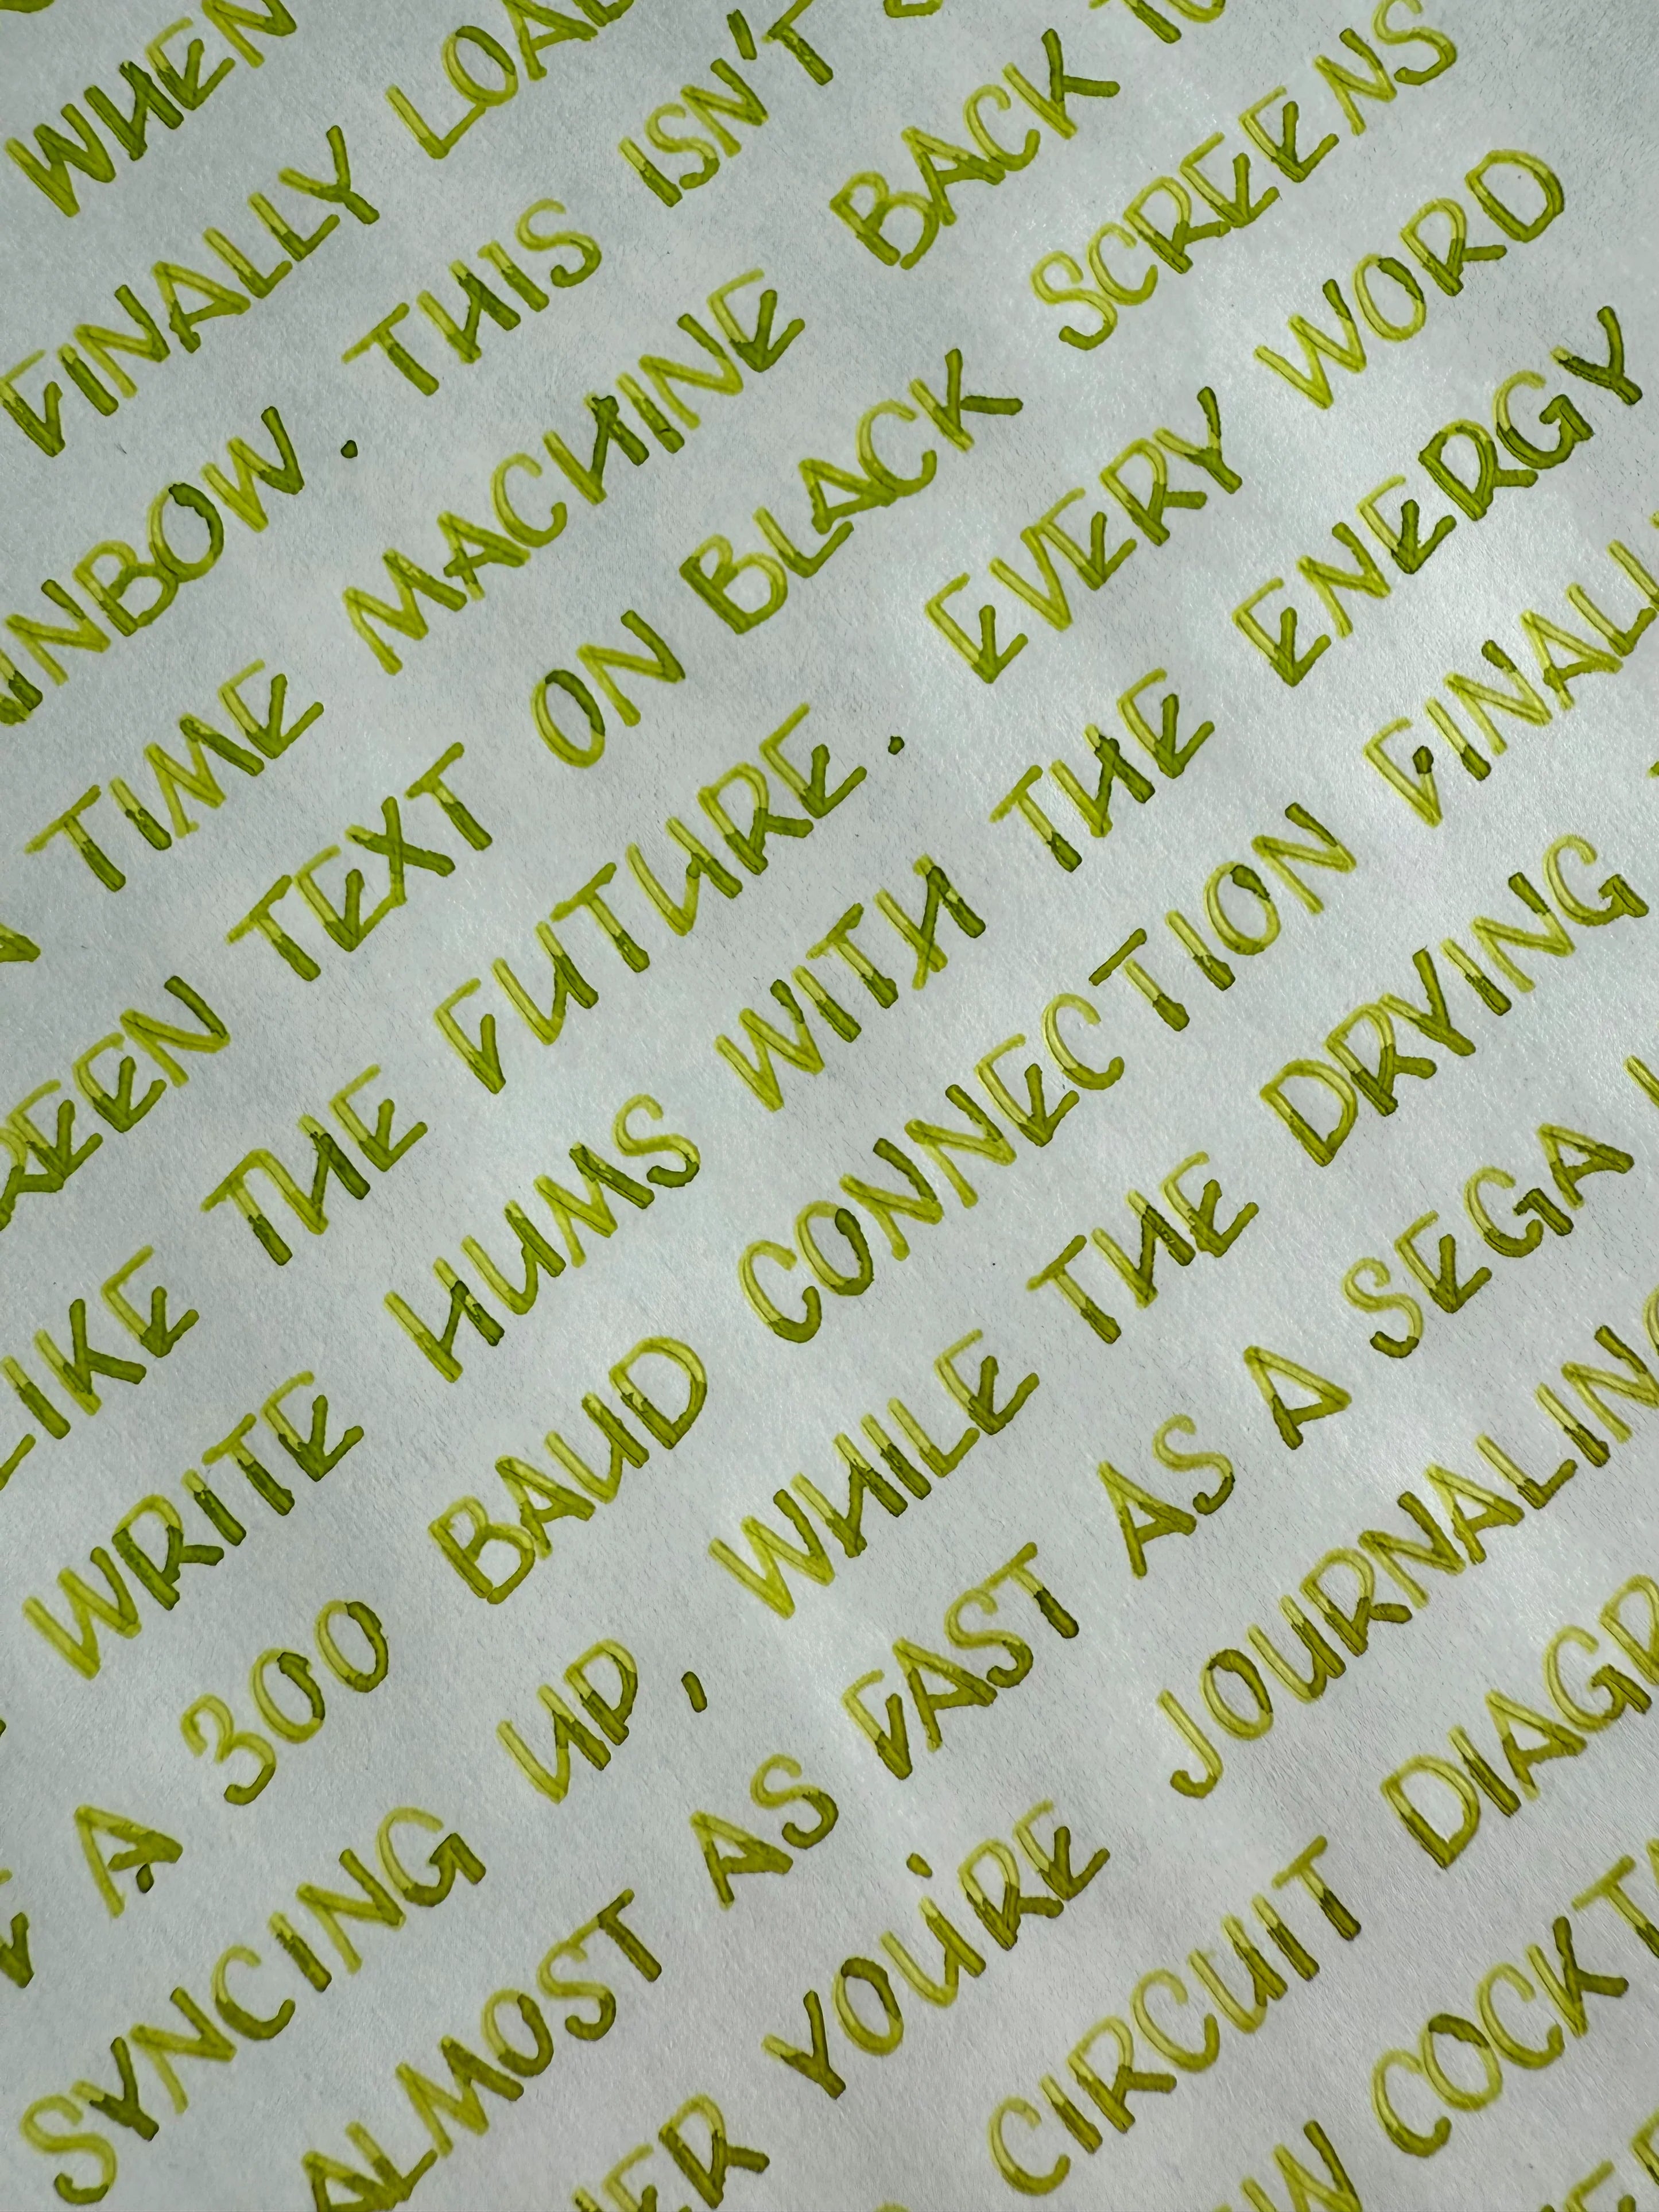 WHEN
FINALLY LOAD
INBOW. THIS ISN'T
TIME MACHINE BACK TO
REEN TEXT ON BLACK SCREENS
LIKE THE FUTURE. EVERY WORD
WRITE HUMS WITH THE ENERGY
A 300 BAUD CONNECTION FINALL
SYNCING UP, WHILE THE DRYING
ALMOST AS FAST AS A SEGA
ER YOU'RE JOURNALING
CIRCUIT DIAGR
COCKTA